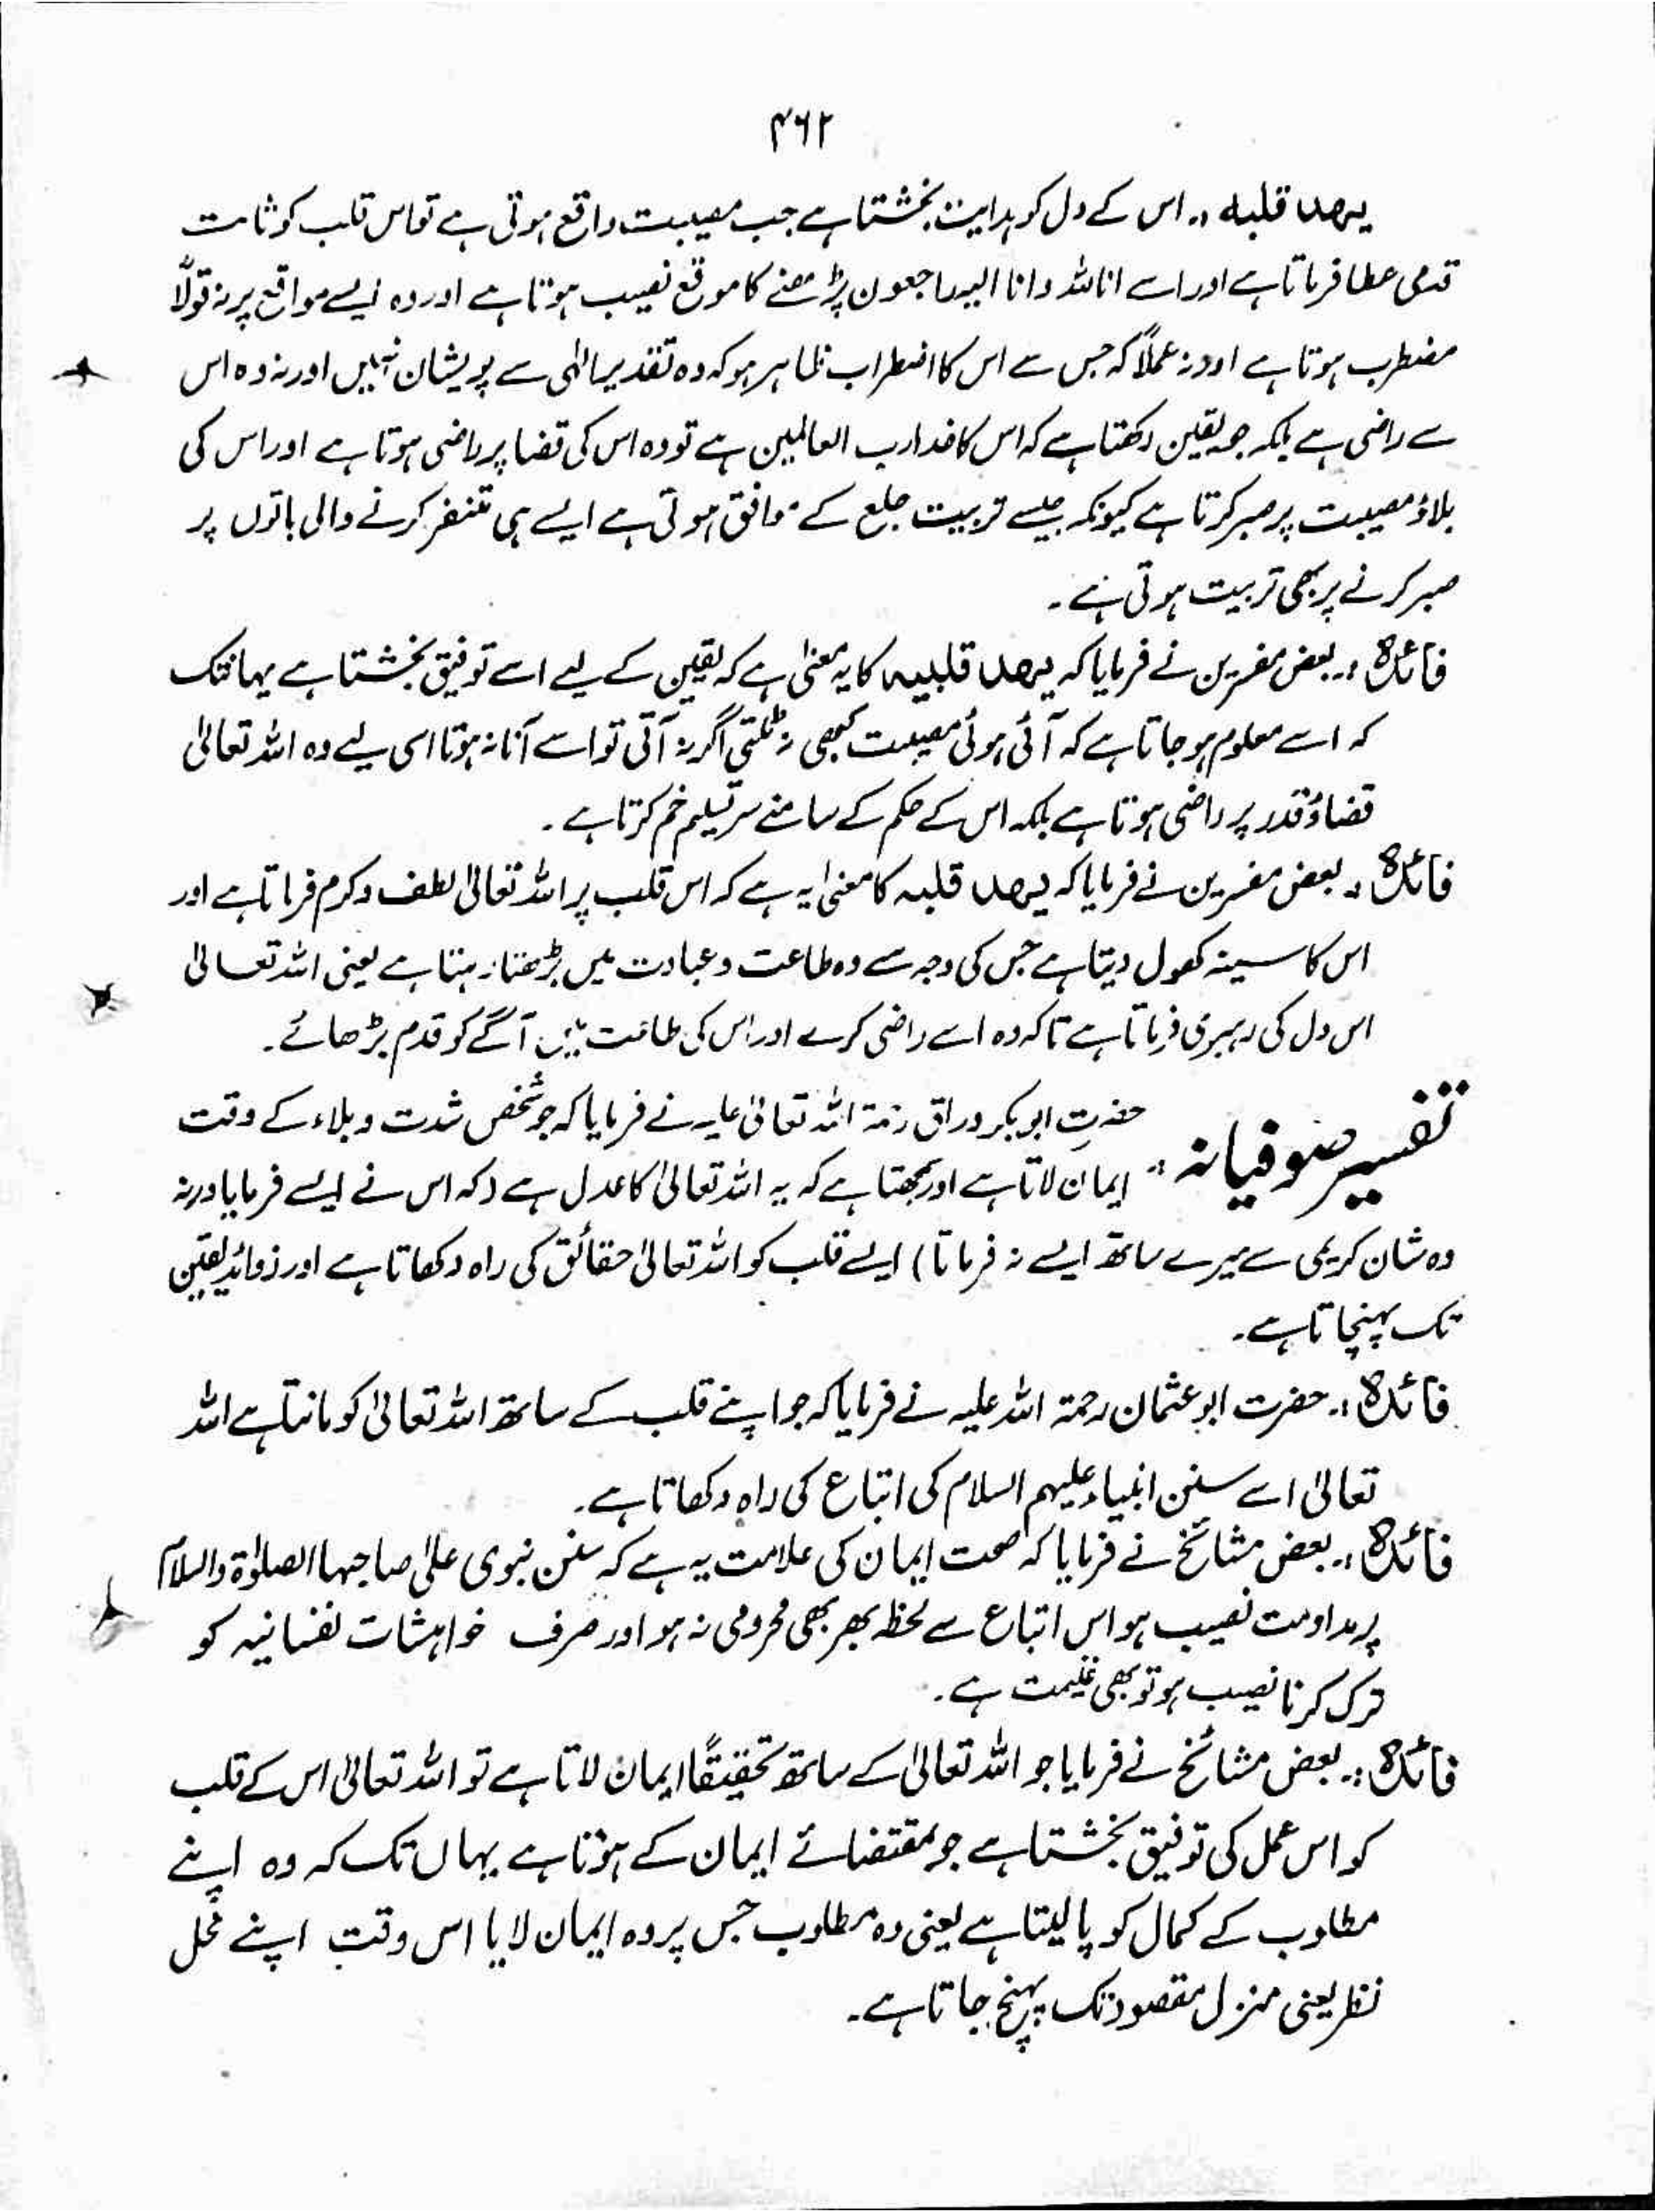 ۴۶۲
یھد قلبہ :۔ اس کے دل کو ہدایت بخشتا ہے جب مصیبت واقع ہوتی ہے تو اس قلب کو ثابت
قدمی عطا فرماتا ہے اور اسے انا للہ وانا الیہ راجعون پڑھنے کا موقع نصیب ہوتا ہے اور وہ ایسے مواقع پر نہ قولاً
مضطرب ہوتا ہے اور نہ عملاً کہ جس سے اس کا اضطراب ظاہر ہو کہ وہ تقدیر الٰہی سے پریشان نہیں اور نہ وہ اس
سے راضی ہے بلکہ جو یقین رکھتا ہے کہ اس کا خدا رب العالمین ہے تو وہ اس کی قضا پر راضی ہوتا ہے اور اس کی
بلاؤ مصیبت پر صبر کرتا ہے کیونکہ جیسے تربیت طبع کے موافق ہوتی ہے ایسے ہی متنفر کرنے والی باتوں پر
صبر کرنے پر بھی تربیت ہوتی ہے ۔
فائدہ :۔ بعض مفسرین نے فرمایا کہ یھد قلبہ کا یہ معنیٰ ہے کہ یقین کے لیے اسے توفیق بخشتا ہے یہانتک
کہ اسے معلوم ہو جاتا ہے کہ آئی ہوئی مصیبت کبھی نہ ٹلتی اگر نہ آتی تو اسے آنا نہ ہوتا اسی لیے وہ اللہ تعالیٰ
قضاؤ قدر پر راضی ہوتا ہے بلکہ اس کے حکم کے سامنے سر تسلیم خم کرتا ہے ۔
فائدہ :۔ بعض مفسرین نے فرمایا کہ یھد قلبہ کا معنیٰ یہ ہے کہ اس قلب پر اللہ تعالیٰ لطف و کرم فرماتا ہے اور
اس کا سینہ کھول دیتا ہے جس کی وجہ سے وہ طاعت و عبادت میں بڑھتا رہتا ہے یعنی اللہ تعالیٰ
اس دل کی رہبری فرماتا ہے تاکہ وہ اسے راضی کرے اور اس کی طاعت میں آگے کو قدم بڑھائے ۔
تفسیر صوفیانہ :۔ حضرت ابو بکر وراق رحمۃ اللہ تعالیٰ علیہ نے فرمایا کہ جو شخص شدت و بلاء کے وقت
ایمان لاتا ہے اور سمجھتا ہے کہ یہ اللہ تعالیٰ کا عدل ہے (کہ اس نے ایسے فرمایا ورنہ
وہ شان کریمی سے میرے ساتھ ایسے نہ فرماتا) ایسے قلب کو اللہ تعالیٰ حقائق کی راہ دکھاتا ہے اور زوائد یقین
تک پہنچاتا ہے ۔
فائدہ :۔ حضرت ابو عثمان رحمۃ اللہ علیہ نے فرمایا کہ جو اپنے قلب کے ساتھ اللہ تعالیٰ کو مانتا ہے اللہ
تعالیٰ اسے سنن انبیاء علیہم السلام کی اتباع کی راہ دکھاتا ہے ۔
فائدہ :۔ بعض مشائخ نے فرمایا کہ صحت ایمان کی علامت یہ ہے کہ سنن نبوی علیٰ صاحبہا الصلوٰۃ والسلام
پر مداومت نصیب ہو اس اتباع سے لحظہ بھر بھی محرومی نہ ہو اور صرف خواہشات نفسانیہ کو
ترک کرنا نصیب ہو تو بھی غنیمت ہے ۔
فائدہ :۔ بعض مشائخ نے فرمایا جو اللہ تعالیٰ کے ساتھ تحقیقًا ایمان لاتا ہے تو اللہ تعالیٰ اس کے قلب
کو اس عمل کی توفیق بخشتا ہے جو مقتضائے ایمان کے ہوتا ہے یہاں تک کہ وہ اپنے
مطلوب کے کمال کو پا لیتا ہے یعنی وہ مطلوب جس پر وہ ایمان لایا اس وقت اپنے محل
نظر یعنی منزل مقصود تک پہنچ جاتا ہے ۔